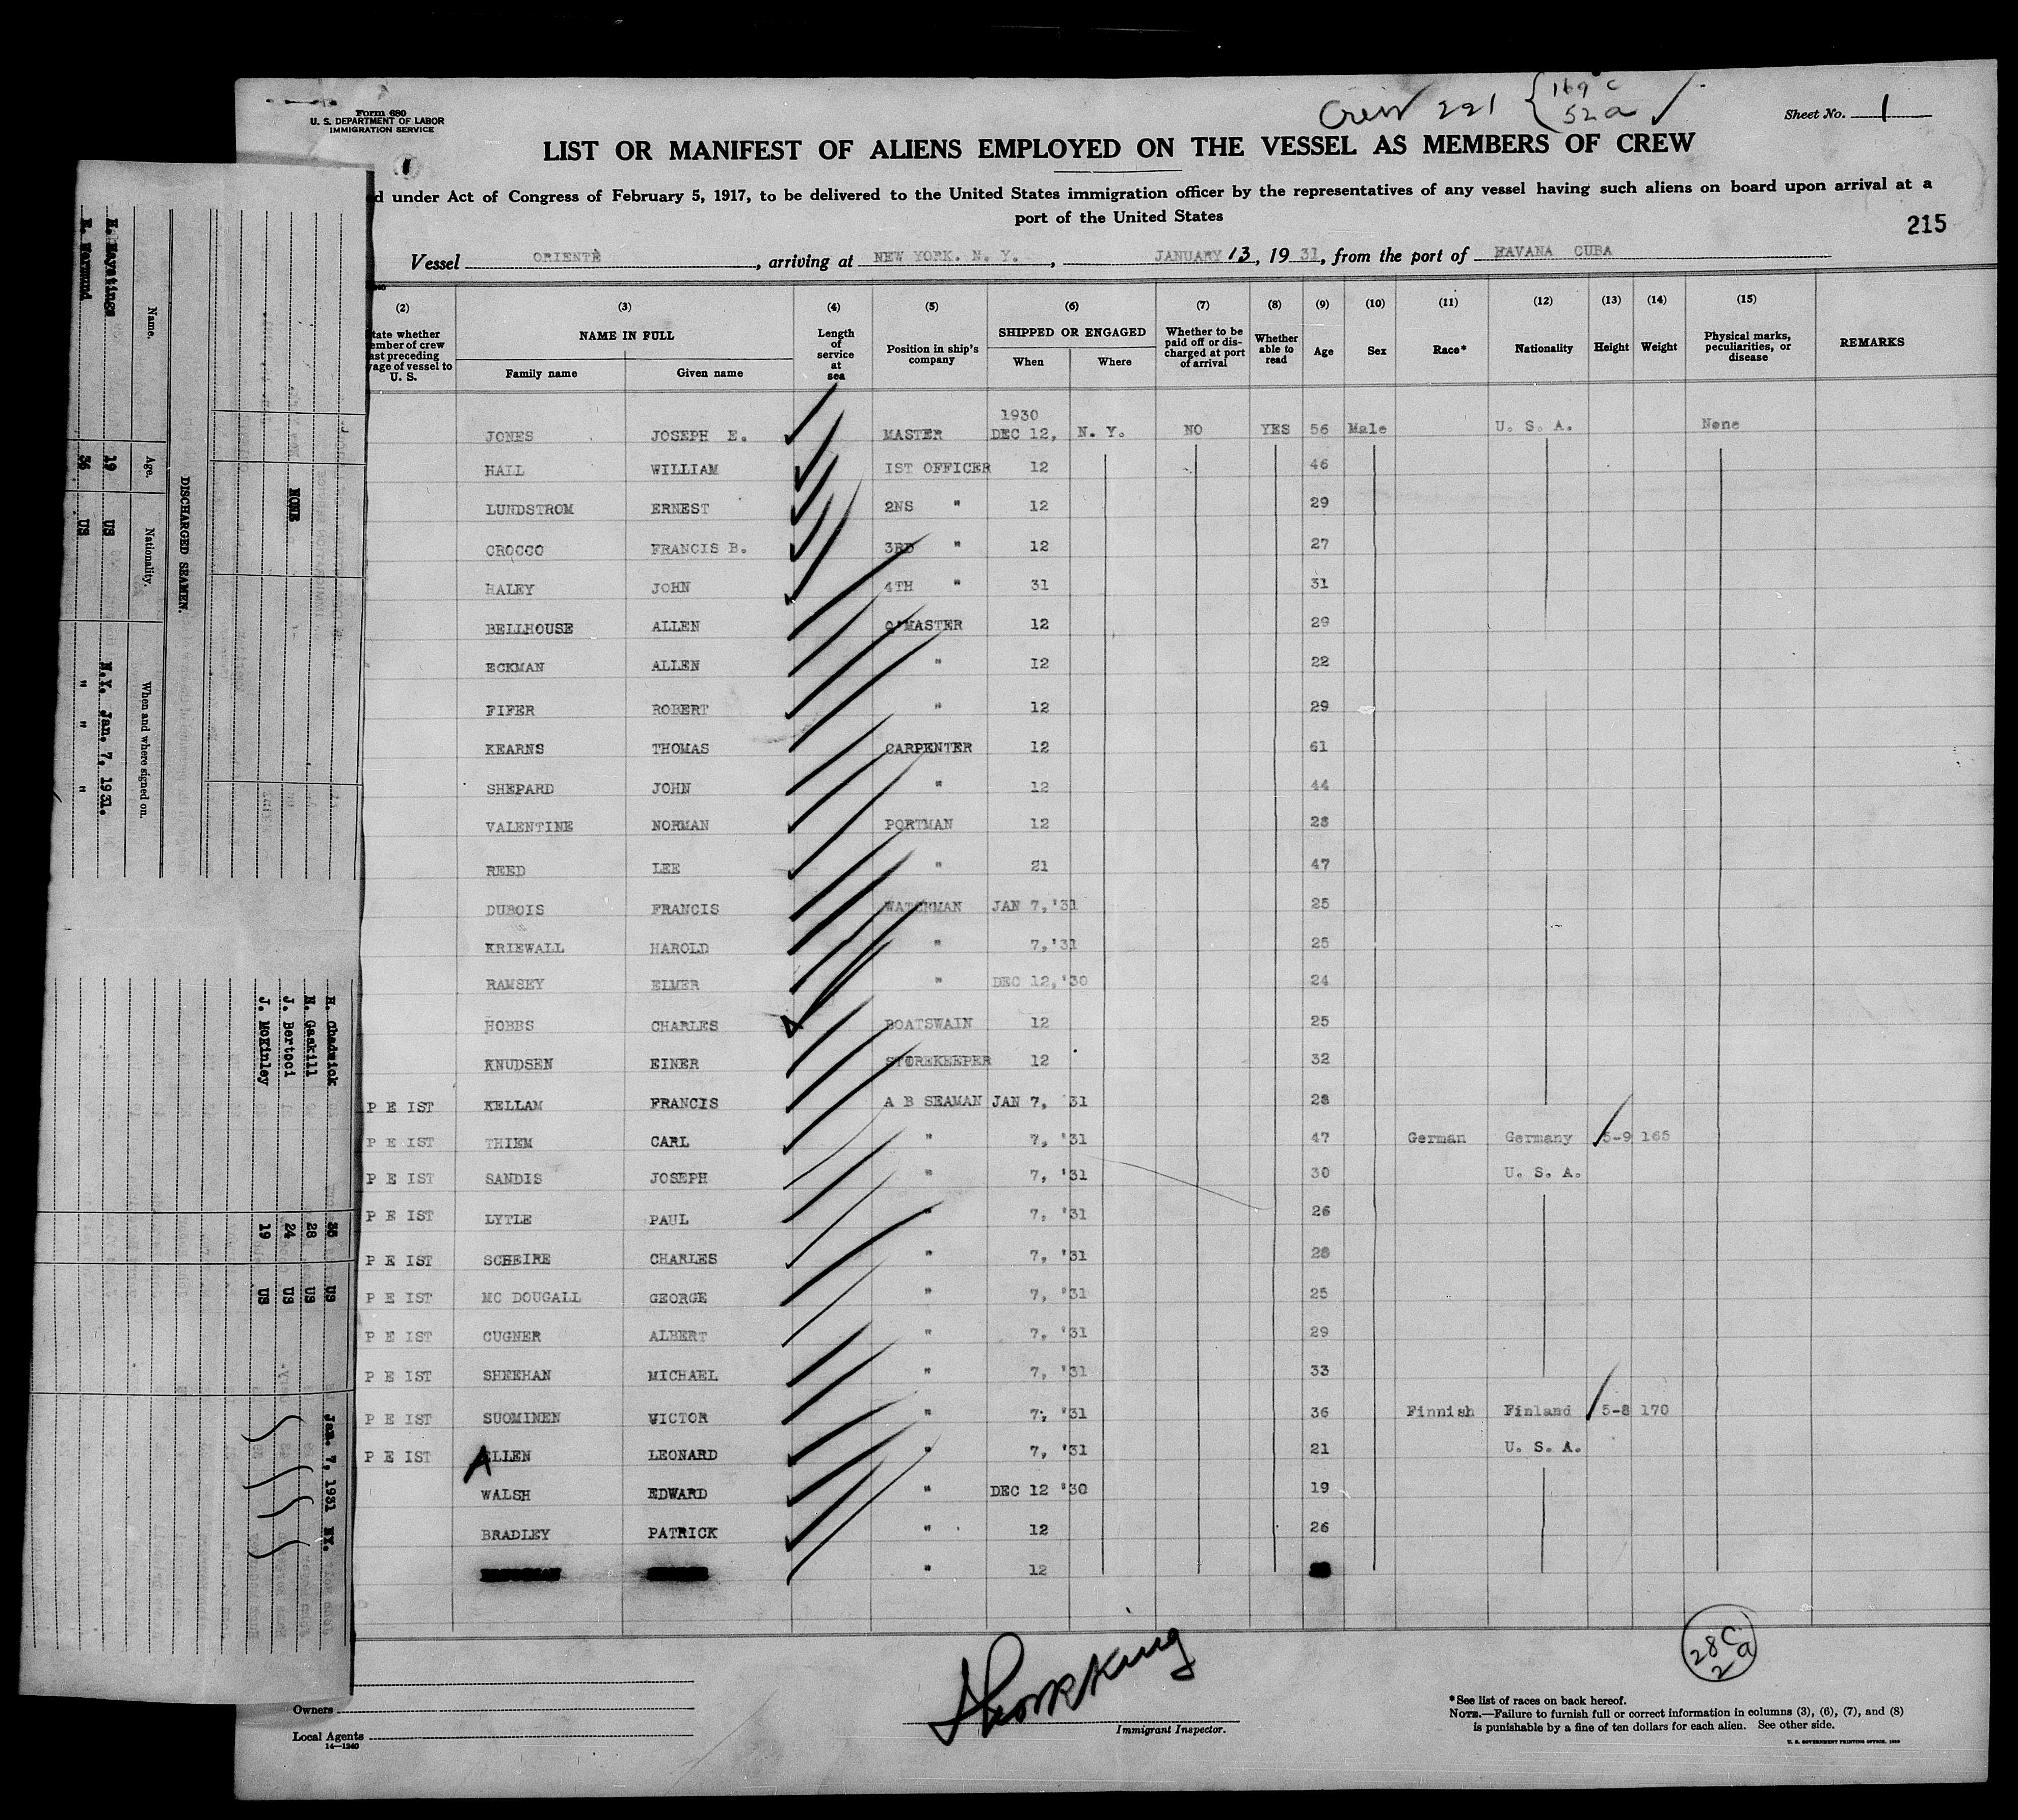 Form 680
U. S. DEPARTMENT OF LABOR
IMMIGRATION SERVICE
Crew 221 { 169 c
52 a
Sheet No. 1
LIST OR MANIFEST OF ALIENS EMPLOYED ON THE VESSEL AS MEMBERS OF CREW
d under Act of Congress of February 5, 1917, to be delivered to the United States immigration officer by the representatives of any vessel having such aliens on board upon arrival at a
port of the United States
215
Vessel ORIENTE, arriving at NEW YORK. N. Y., JANUARY 13, 1931, from the port of HAVANA CUBA
(2) (3) (4) (5) (6) (7) (8) (9) (10) (11) (12) (13) (14) (15)
tate whether
ember of crew
ast preceding
yage of vessel to
U. S.
NAME IN FULL
Family name Given name
Length
of
service
at
sea
Position in ship's
company
SHIPPED OR ENGAGED
When Where
Whether to be
paid off or dis-
charged at port
of arrival
Whether
able to
read
Age
Sex
Race*
Nationality
Height
Weight
Physical marks,
peculiarities, or
disease
REMARKS
1930
JONES JOSEPH E. MASTER DEC 12, N. Y. NO YES 56 Male U. S. A. None
HALL WILLIAM IST OFFICER 12 46
LUNDSTROM ERNEST 2NS " 12 29
CROCCO FRANCIS B. 3RD " 12 27
HALEY JOHN 4TH " 31 31
BELLHOUSE ALLEN Q'MASTER 12 29
ECKMAN ALLEN " 12 22
FIFER ROBERT " 12 29
KEARNS THOMAS CARPENTER 12 61
SHEPARD JOHN " 12 44
VALENTINE NORMAN PORTMAN 12 28
REED LEE " 21 47
DUBOIS FRANCIS WATCHMAN JAN 7,'31 25
KRIEWALL HAROLD " 7,'31 25
RAMSEY ELMER " DEC 12,'30 24
HOBBS CHARLES BOATSWAIN 12 25
KNUDSEN EINER STOREKEEPER 12 32
P E IST KELLAM FRANCIS A B SEAMAN JAN 7, 31 28
P E IST THIEM CARL " 7, '31 47 German Germany 5-9 165
P E IST SANDIS JOSEPH " 7, '31 30 U. S. A.
P E IST LYTLE PAUL " 7, '31 26
P E IST SCHEIRE CHARLES " 7, '31 28
P E IST MC DOUGALL GEORGE " 7, '31 25
P E IST CUGNER ALBERT " 7, '31 29
P E IST SHEEHAN MICHAEL " 7, '31 33
P E IST SUOMINEN VICTOR " 7, '31 36 Finnish Finland 5-8 170
P E IST ALLEN LEONARD " 7, '31 21 U. S. A.
WALSH EDWARD " DEC 12 '30 19
BRADLEY PATRICK " 12 26
" 12
28 c
2 a
Immigrant Inspector.
Owners
Local Agents
14—1240
*See list of races on back hereof.
NOTE.—Failure to furnish full or correct information in columns (3), (6), (7), and (8)
is punishable by a fine of ten dollars for each alien. See other side.
U. S. GOVERNMENT PRINTING OFFICE
NONE
DISCHARGED SEAMEN.
Name. Age. Nationality. When and where signed on.
19 US N.Y. Jan. 7, 1931.
36 US " " "
H. Chadwick US Jan. 7, 1931 NY.
N. Gaskill 28 US
J. Bertocci 24 US
J. McKinley 19 US